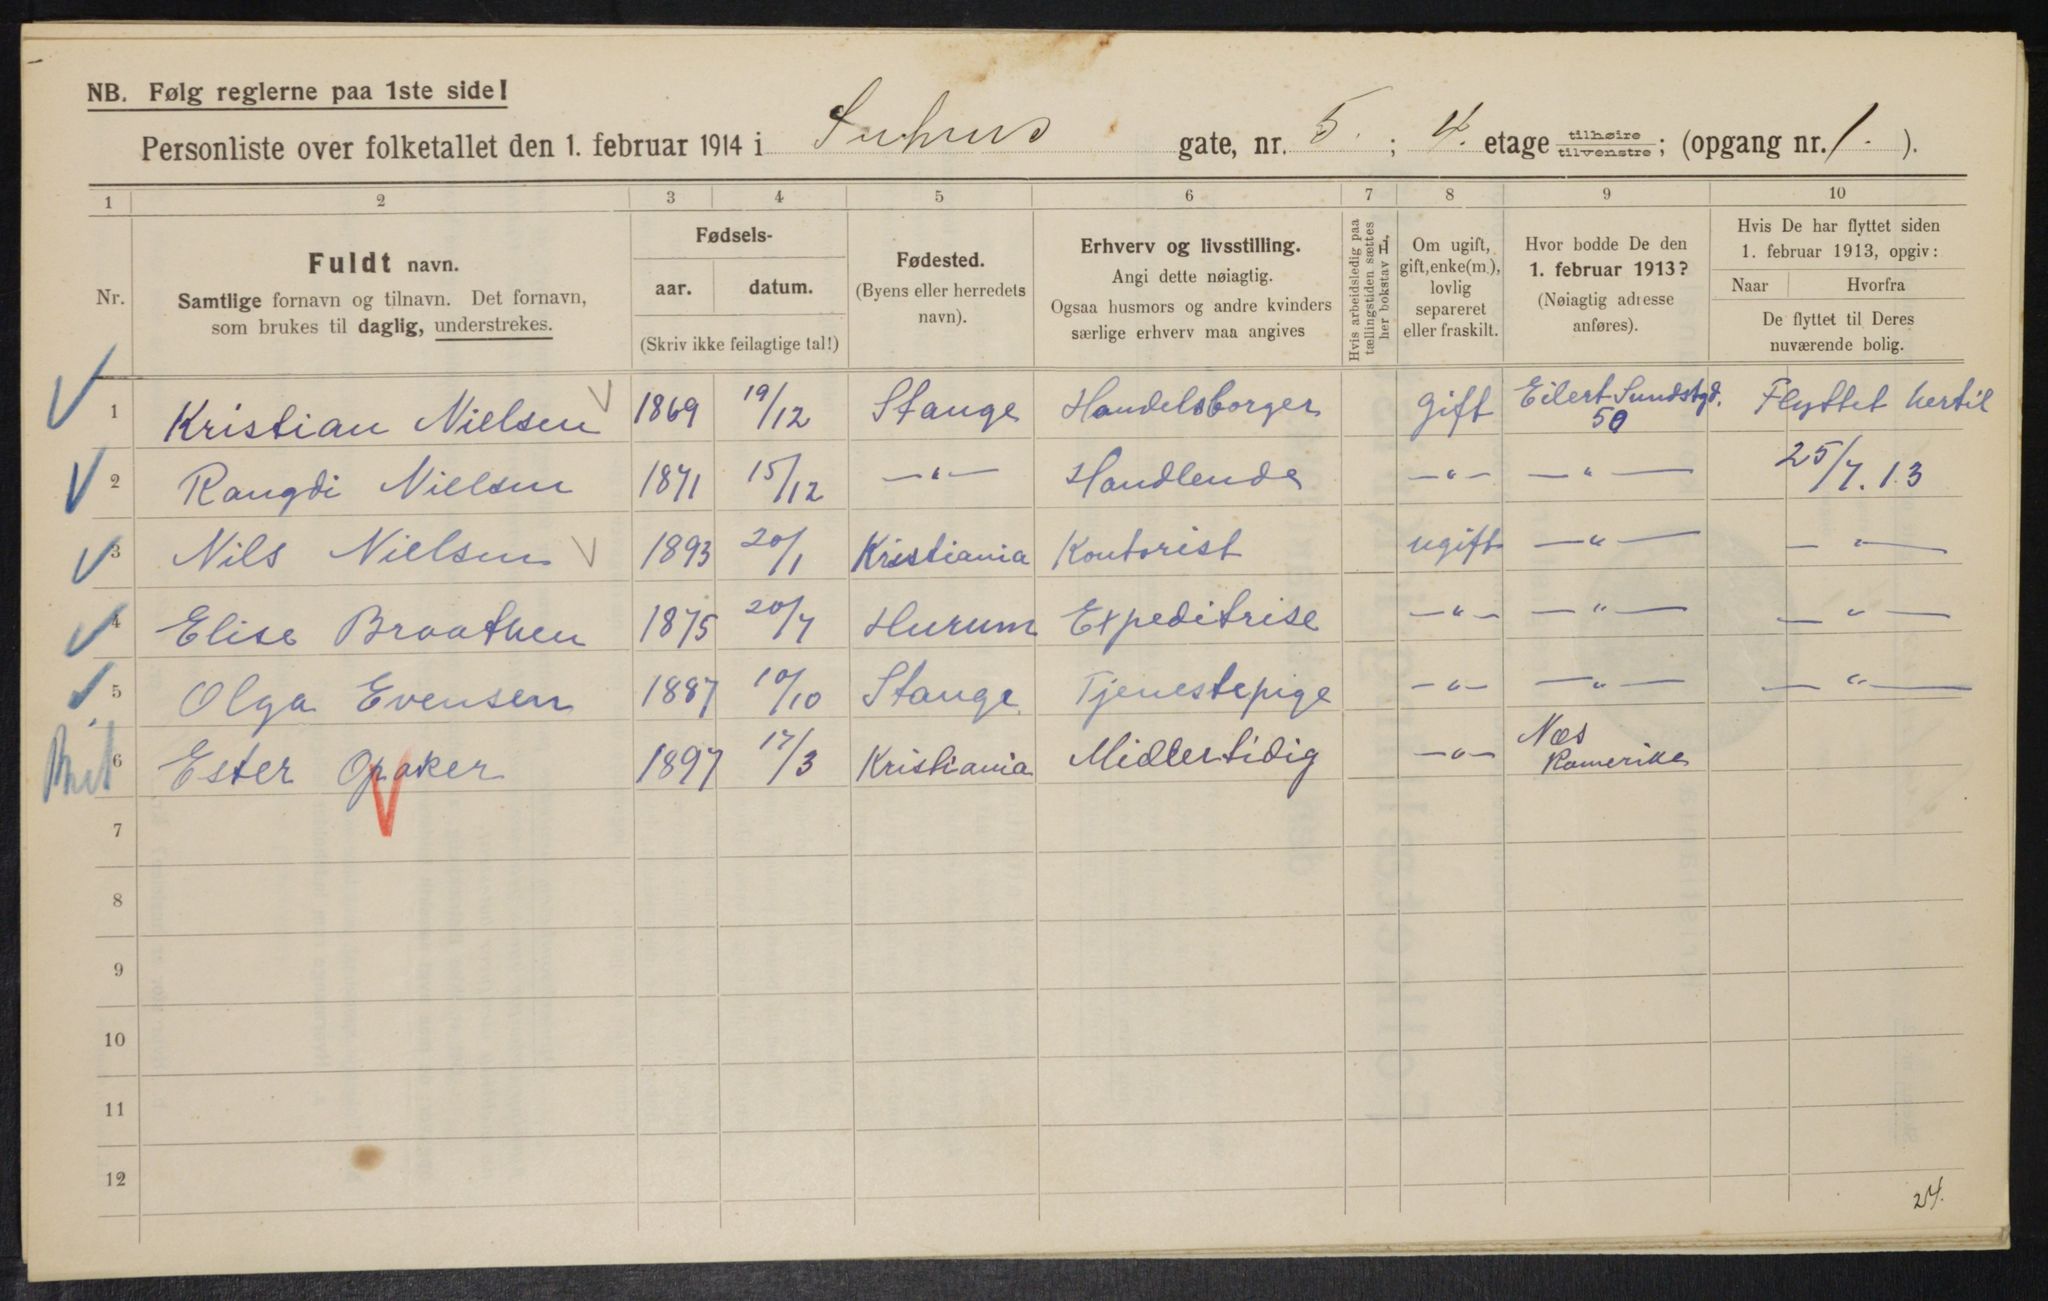 NB. Følg reglerne paa 1ste side!
Personliste over folketallet den 1. februar 1914 i Suhms gate, nr. 5. ; 4. etage tilhøire tilvenstre ; (opgang nr. 1. ).
1 2 3 4 5 6 7 8 9 10
Nr.
Fuldt navn.
Samtlige fornavn og tilnavn. Det fornavn,
som brukes til daglig, understrekes.
Fødsels-
aar. datum.
(Skriv ikke feilagtige tal!)
Fødested.
(Byens eller herredets
navn).
Erhverv og livsstilling.
Angi dette nøiagtig.
Ogsaa husmors og andre kvinders
særlige erhverv maa angives
Hvis arbeidsledig paa
tællingstiden sættes
her bokstav L.
Om ugift,
gift, enke(m.),
lovlig
separeret
eller fraskilt.
Hvor bodde De den
1. februar 1913?
(Nøiagtig adresse
anføres).
Hvis De har flyttet siden
1. februar 1913, opgiv:
Naar Hvorfra
De flyttet til Deres
nuværende bolig.
1 Kristian Nielsen 1869 19/12 Stange Handelsborger gift Eilert Sundstgd. 50 Flyttet hertil
2 Rangdi Nielsen 1871 15/12 —"— Handlende —"— —"— 25/7. 13
3 Nils Nielsen 1893 20/1 Kristiania Kontorist ugift —"— —"—
4 Elise Braathen 1875 20/7 Hurum Expeditrise —"— —"— —"—
5 Olga Evensen 1887 10/10 Stange Tjenestepige —"— —"— —"—
6 Ester Opaker 1897 17/3 Kristiania Midlertidig —"— Næs Romerike
7
8
9
10
11
12
24.